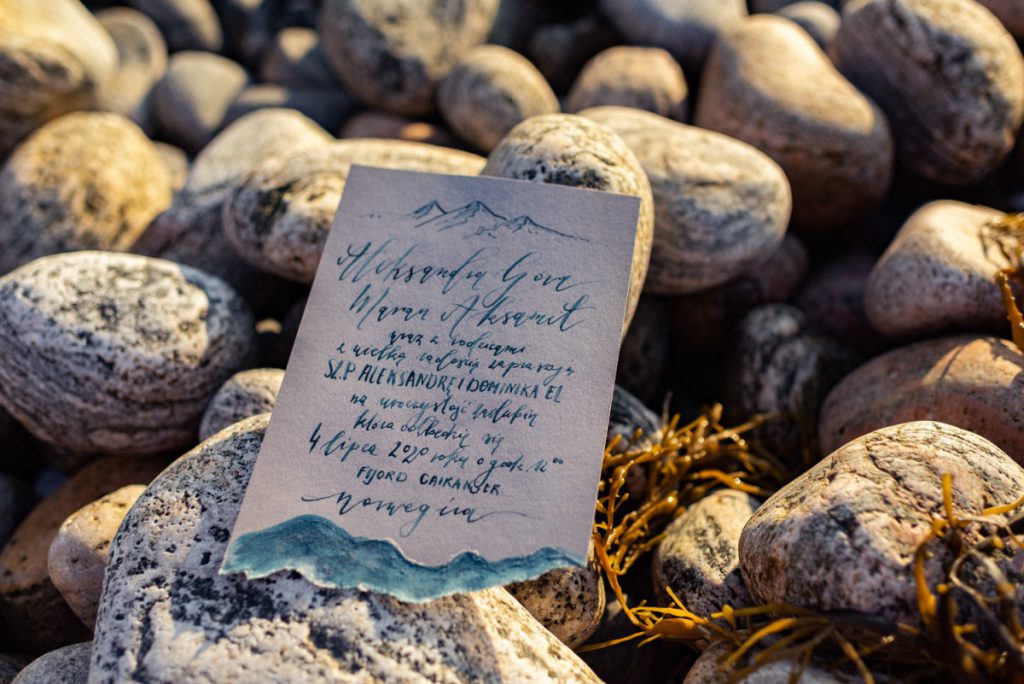 Aleksandra Gora
Marcin Aksamit
wraz z rodzicami
z wielką radością zapraszają
SZ.P ALEKSANDRĘ I DOMINIKA EL
na uroczystość zaślubin
która odbędzie się
4 lipca 2020 roku o godz. 12⁰⁰
FIJORD GAIRANGER
norwegia